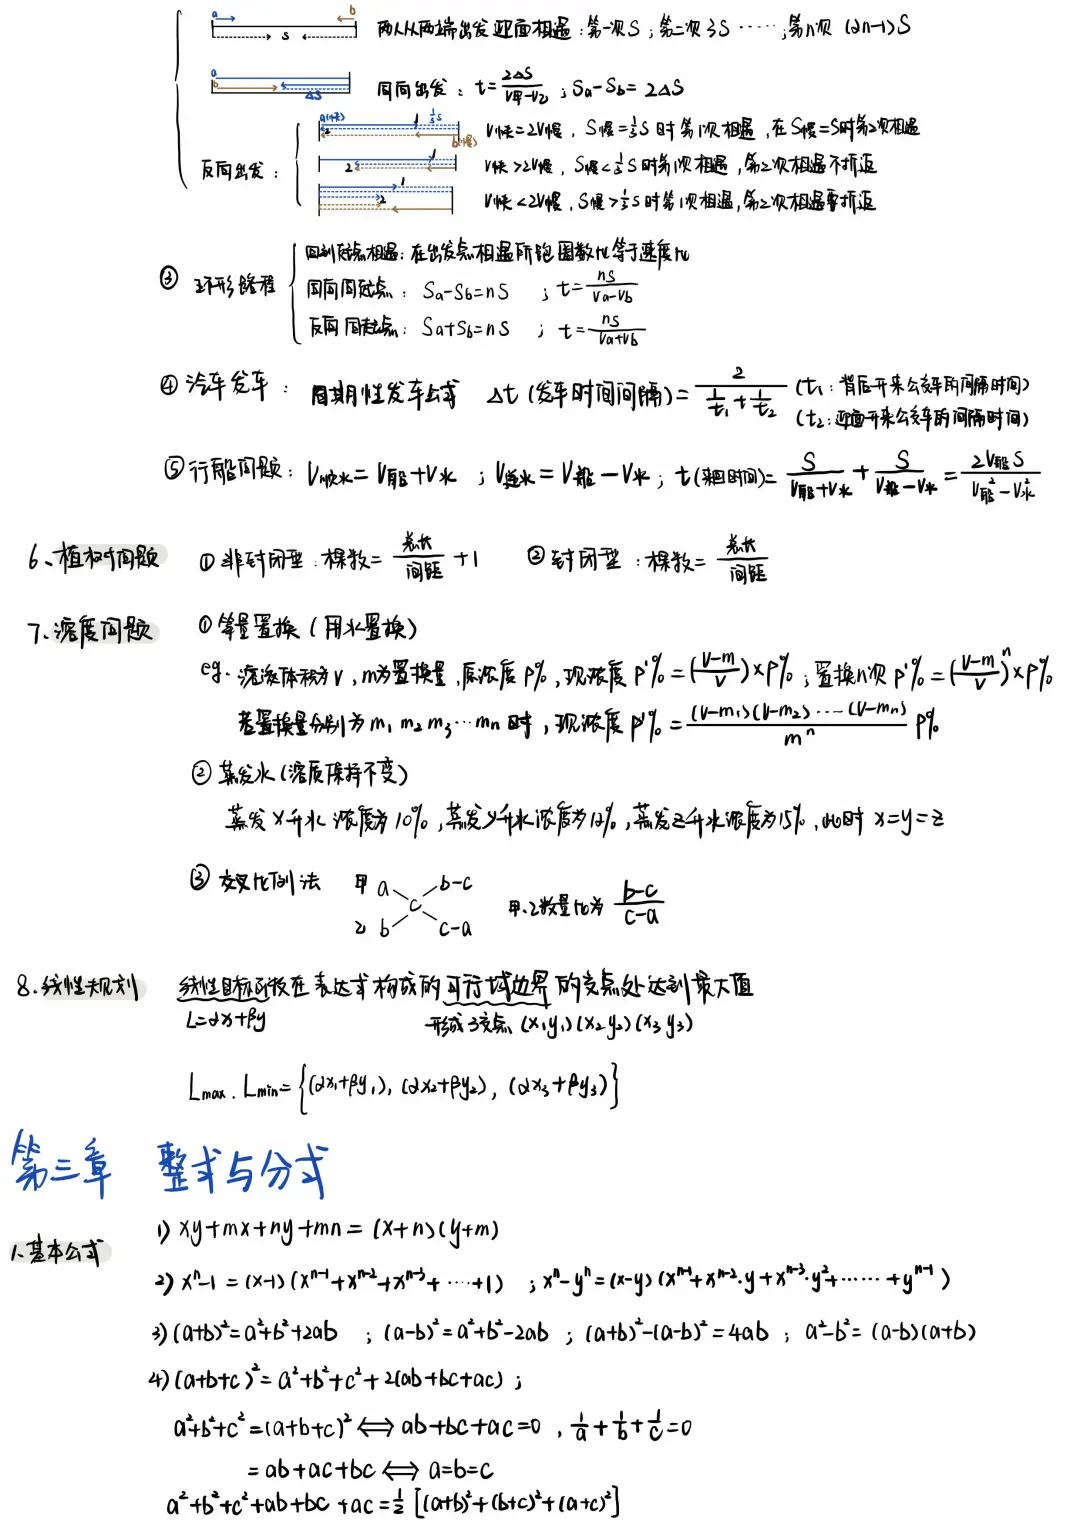 a b
S
两人从两端出发迎面相遇：第一次S；第二次3S ……；第n次 (2n-1)S
a
b
ΔS
同向出发：t=2ΔS/(V甲-V乙)；Sa-Sb=2ΔS
反向出发：
a(快) 1 ½S
2 b(慢)
V快=2V慢，S慢=½S时第1次相遇，在S慢=S时第2次相遇
2 1
V快>2V慢，S慢<½S时第1次相遇，第2次相遇不折返
1
2
V快<2V慢，S慢>½S时第1次相遇，第2次相遇要折返
③ 环形路程
回到起点相遇：在出发点相遇所跑圈数比等于速度比
同向同起点：Sa-Sb=nS ；t=nS/(Va-Vb)
反向同起点：Sa+Sb=nS ；t=nS/(Va+Vb)
④ 汽车发车：周期性发车公式 Δt (发车时间间隔)=2/(1/t₁+1/t₂) (t₁：背后开来公交车的间隔时间)
(t₂：迎面开来公交车的间隔时间)
⑤ 行船问题：V顺水=V船+V水；V逆水=V船-V水；t(来回时间)=S/(V船+V水)+S/(V船-V水)=2V船S/(V船²-V水²)
6、植树问题 ① 非封闭型：棵数=总长/间距+1 ② 封闭型：棵数=总长/间距
7、浓度问题 ① 等量置换(用水置换)
eg. 溶液体积为v，m为置换量，原浓度P%，现浓度P'%=((V-m)/V)×P%；置换n次P'%=((V-m)/V)ⁿ×P%
若置换量分别为m₁ m₂ m₃…mn时，现浓度P'%=(V-m₁)(V-m₂)……(V-mn)/mⁿ P%
② 蒸发水(溶质保持不变)
蒸发X升水浓度为10%，蒸发y升水浓度为12%，蒸发Z升水浓度为15%，此时x=y=z
③ 交叉比例法 甲 a b-c
c
乙 b c-a
甲、乙数量比为 (b-c)/(c-a)
8、线性规划 线性目标函数在表达式构成的可行域边界的交点处达到最大值
L=αx+βy 形成3交点 (x₁y₁)(x₂y₂)(x₃y₃)
Lmax、Lmin={(αx₁+βy₁), (αx₂+βy₂), (αx₃+βy₃)}
第三章 整式与分式
1、基本公式
1) xy+mx+ny+mn=(x+n)(y+m)
2) xⁿ-1=(x-1)(xⁿ⁻¹+xⁿ⁻²+xⁿ⁻³+……+1) ；xⁿ-yⁿ=(x-y)(xⁿ⁻¹+xⁿ⁻²·y+xⁿ⁻³·y²+……+yⁿ⁻¹)
3) (a+b)²=a²+b²+2ab ；(a-b)²=a²+b²-2ab ；(a+b)²-(a-b)²=4ab ；a²-b²=(a-b)(a+b)
4) (a+b+c)²=a²+b²+c²+2(ab+bc+ac)；
a²+b²+c²=(a+b+c)² ⟺ ab+bc+ac=0，1/a+1/b+1/c=0
=ab+ac+bc ⟺ a=b=c
a²+b²+c²+ab+bc+ac=½[(a+b)²+(b+c)²+(a+c)²]